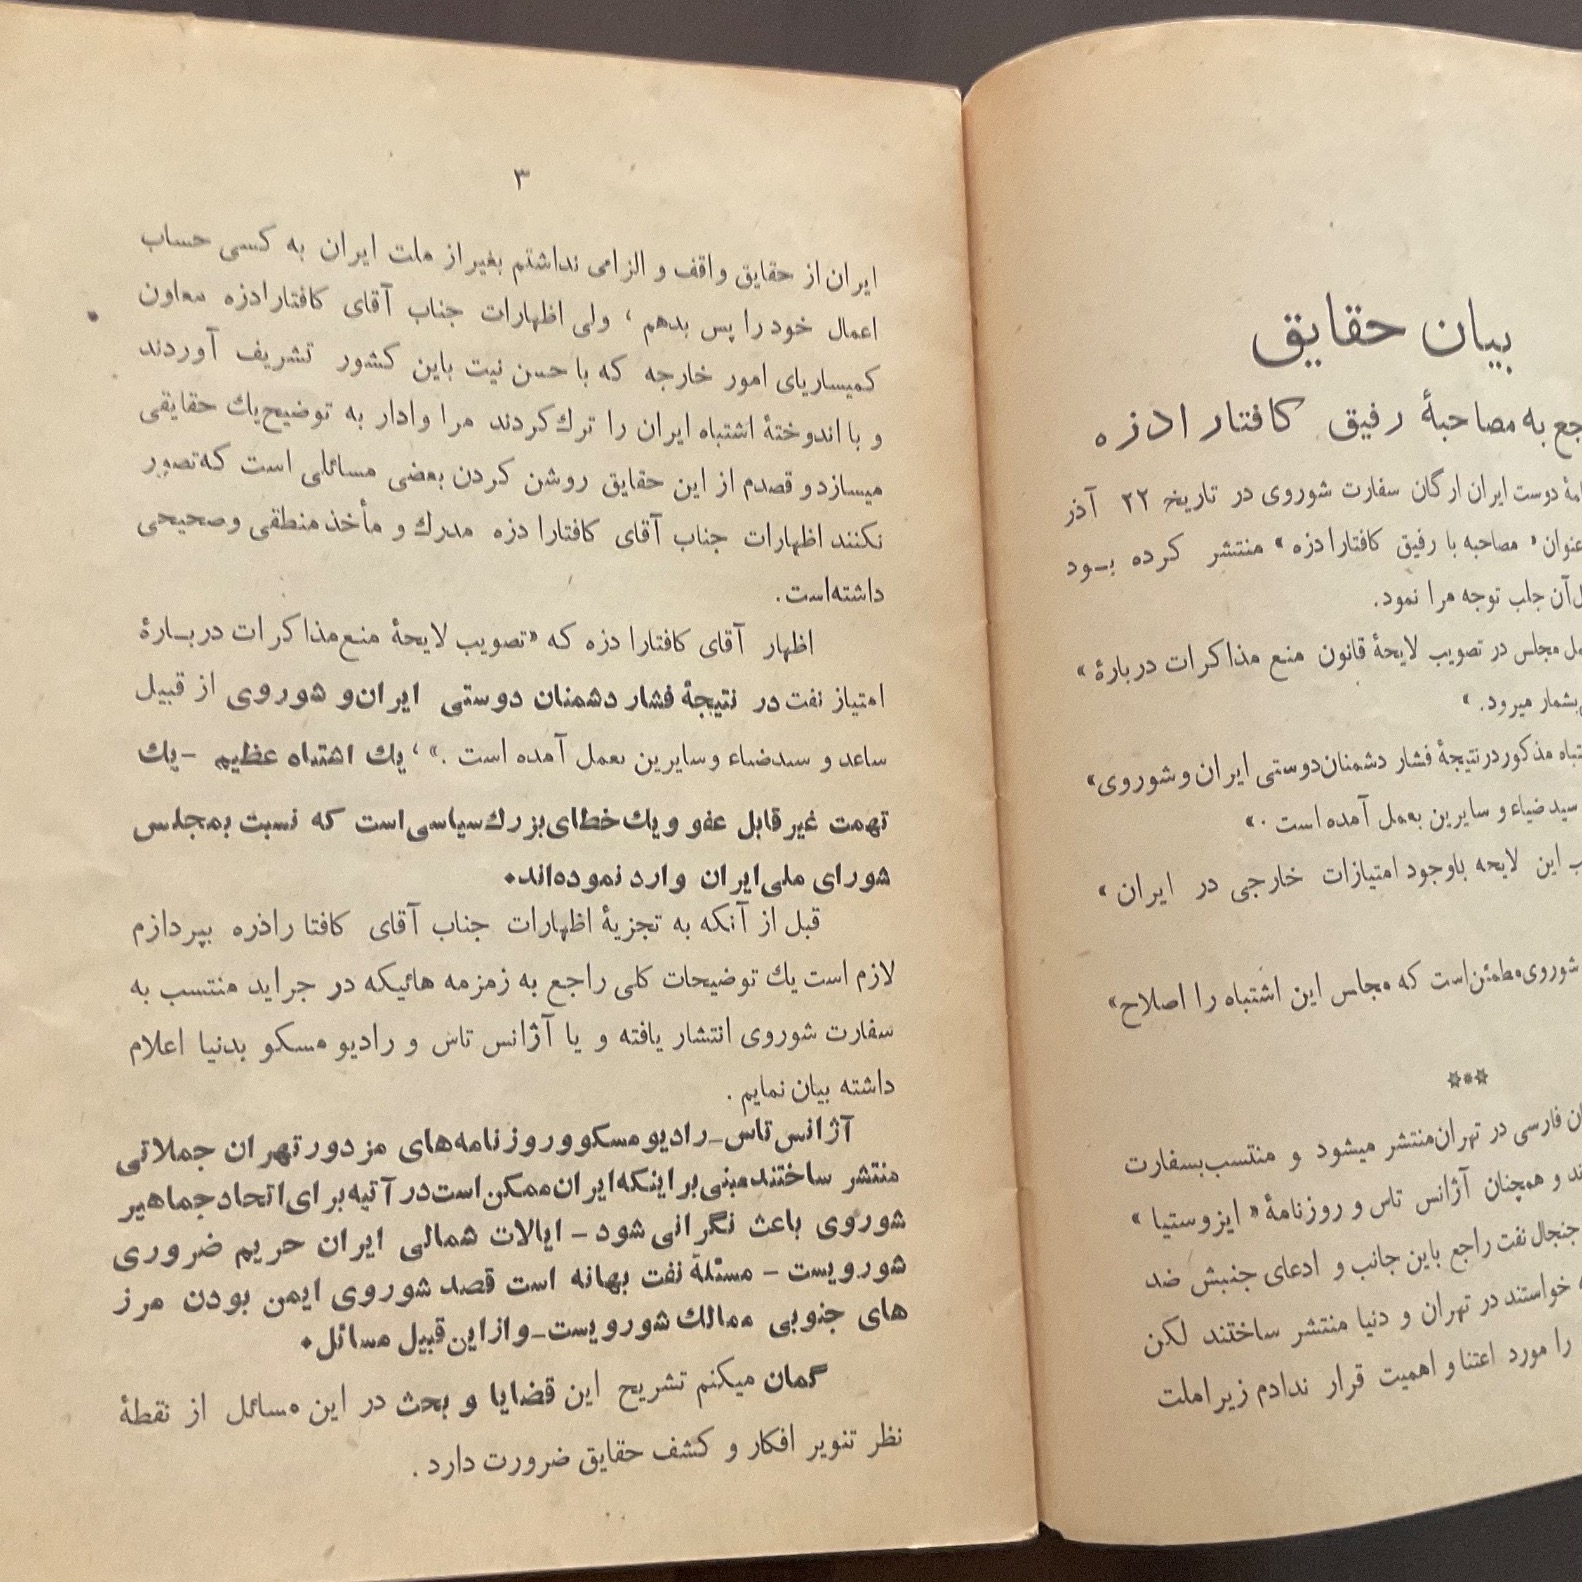 بیان حقایق
به مصاحبهٔ رفیق کافتارادزه
دوست ایران ارگان سفارت شوروی در تاریخ ۲۲ آذر
عنوان « مصاحبه با رفیق کافتارادزه » منتشر کرده بـود
آن جلب توجه مرا نمود.
مجلس در تصویب لایحهٔ قانون منع مذاکرات دربارهٔ »
بشمار میرود. »
مذکور در نتیجهٔ فشار دشمنان دوستی ایران و شوروی»
سید ضیاء و سایرین بعمل آمده است ۰»
این لایحه باوجود امتیازات خارجی در ایران »
شوروی مطمئن است که مجلس این اشتباه را اصلاح»
***
فارسی در تهران منتشر میشود و منتسب بسفارت
و همچنان آژانس تاس و روزنامهٔ « ایزوستیا »
جنجال نفت راجع باین جانب و ادعای جنبش ضد
خواستند در تهران و دنیا منتشر ساختند لکن
را مورد اعتنا و اهمیت قرار ندادم زیرا ملت
۳
ایران از حقایق واقف و الزامی نداشتم بغیر از ملت ایران به کسی حساب
اعمال خود را پس بدهم ، ولی اظهارات جناب آقای کافتارادزه معاون
کمیساریای امور خارجه که با حسن نیت باین کشور تشریف آوردند
و با اندوختهٔ اشتباه ایران را ترك کردند مرا وادار به توضیح یك حقایقی
میسازد و قصدم از این حقایق روشن کردن بعضی مسائلی است که تصور
نکنند اظهارات جناب آقای کافتارا دزه مدرك و مأخذ منطقی و صحیحی
داشته است.
اظهار آقای کافتارا دزه که «تصویب لایحهٔ منع مذاکرات دربـارهٔ
امتیاز نفت در نتیجهٔ فشار دشمنان دوستی ایران و شوروی از قبیل
ساعد و سیدضیاء و سایرین بعمل آمده است .» ، یك اشتباه عظیم - یك
تهمت غیر قابل عفو و یك خطای بزرك سیاسی است که نسبت بمجلس
شورای ملی ایران وارد نموده‌اند.
قبل از آنکه به تجزیهٔ اظهارات جناب آقای کافتا راذره بپردازم
لازم است یك توضیحات کلی راجع به زمزمه هائیکه در جراید منتسب به
سفارت شوروی انتشار یافته و یا آژانس تاس و رادیو مسکو بدنیا اعلام
داشته بیان نمایم .
آژانس تاس_رادیو مسکو و روزنامه‌های مزدور تهران جملاتی
منتشر ساختند مبنی بر اینکه ایران ممکن است در آتیه برای اتحاد جماهیر
شوروی باعث نگرانی شود - ایالات شمالی ایران حریم ضروری
شورویست - مسئلهٔ نفت بهانه است قصد شوروی ایمن بودن مرز
های جنوبی ممالك شورویست_و از این قبیل مسائل.
گمان میکنم تشریح این قضایا و بحث در این مسائل از نقطهٔ
نظر تنویر افکار و کشف حقایق ضرورت دارد .